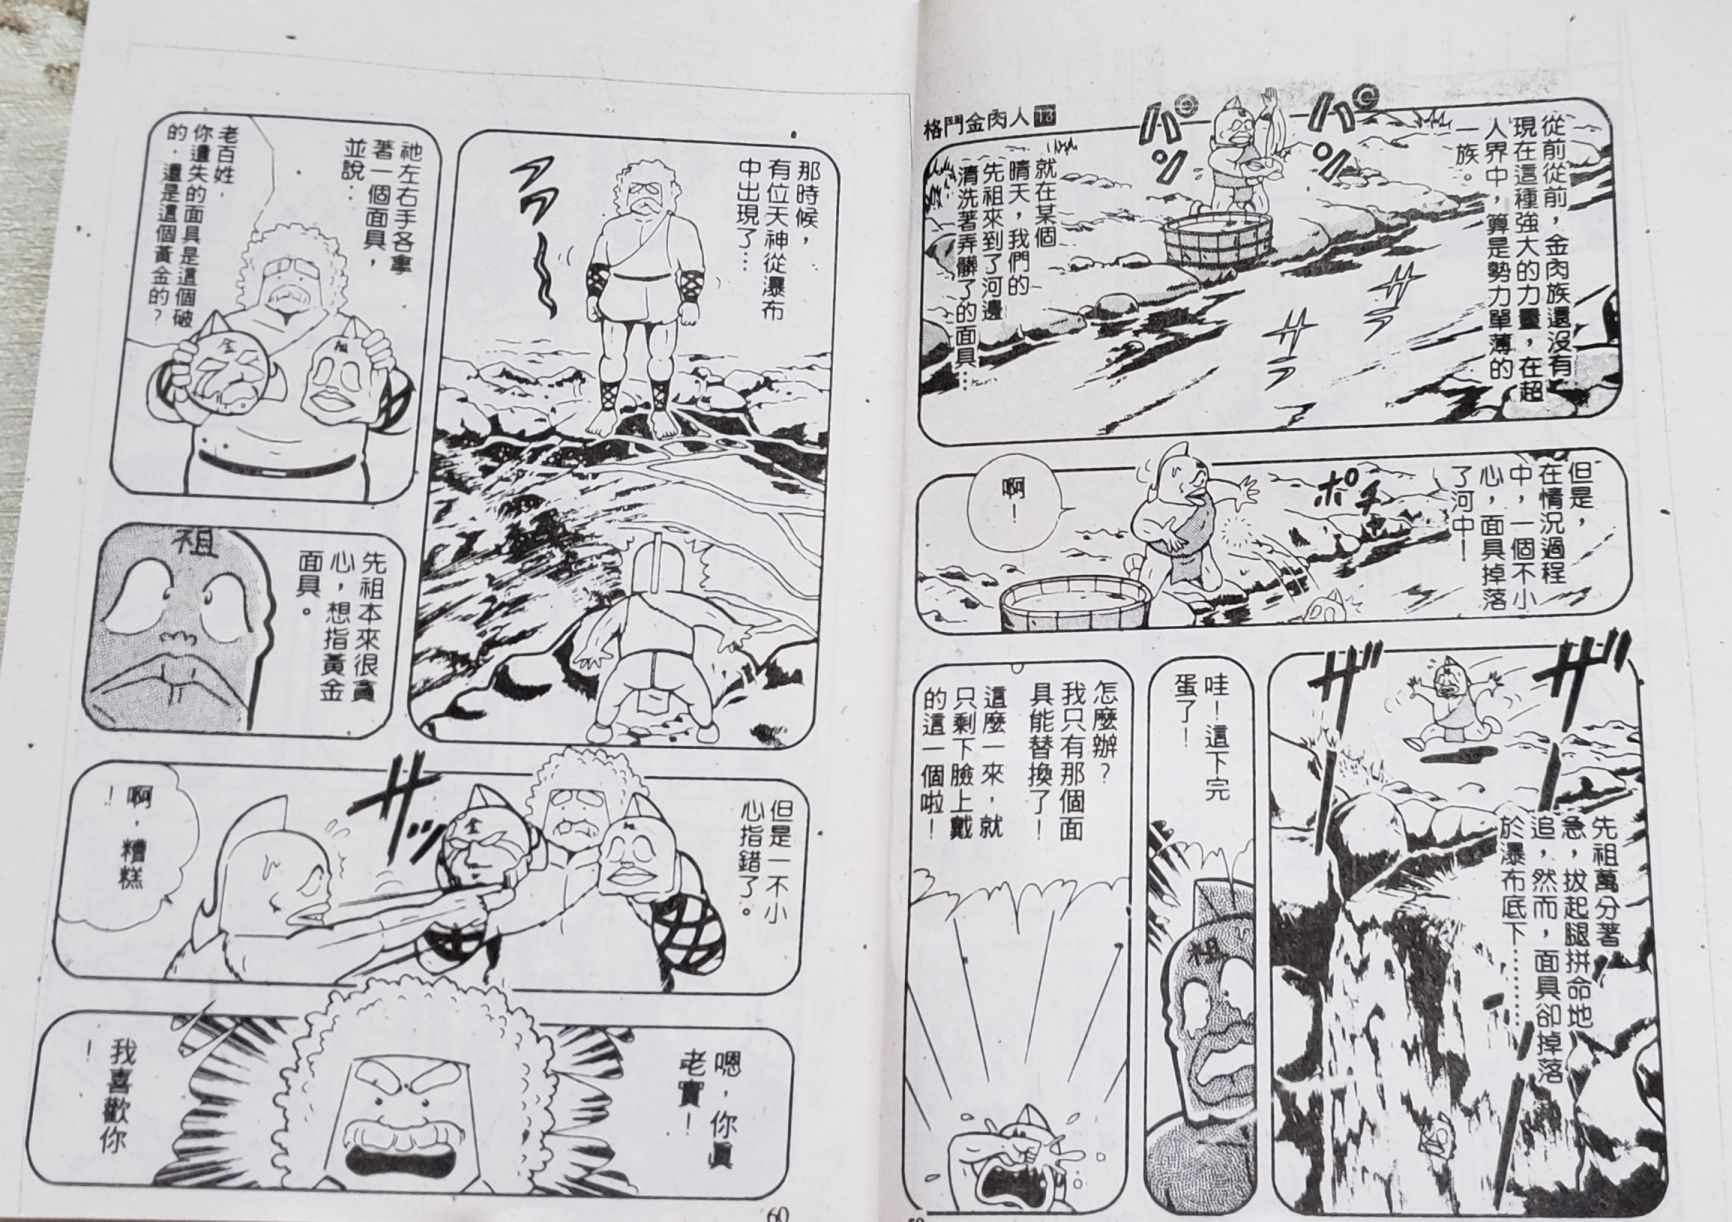 格鬥金肉人13
從前從前，金肉族還沒有
現在這種強大的力量，在超
人界中，算是勢力單薄的
一族。
パン
パン
就在某個
晴天，我們的
先祖來到了河邊
清洗著弄髒了的面具…
ザー
ザー
但是，
在情況過程
中，一個不小
心，面具掉落
了河中！
ポチ
啊！
ザ
ザ
先祖萬分著
急，拔起腿拼命地
追，然而，面具卻掉落
於瀑布底下………
哇！這下完
蛋了！
祖
怎麼辦？
我只有那個面
具能替換了！
這麼一來，就
只剩下臉上戴
的這一個啦！
那時候，
有位天神從瀑布
中出現了…
祂左右手各拿
著一個面具，
並說…
老百姓，
你遺失的面具是這個破
的，還是這個黃金的？
金
祖
先祖本來很貪
心，想指黃金
面具。
祖
但是一不小
心指錯了。
ザッ
金
啊，糟糕
！
嗯，你真
老實！
我喜歡你
！
60